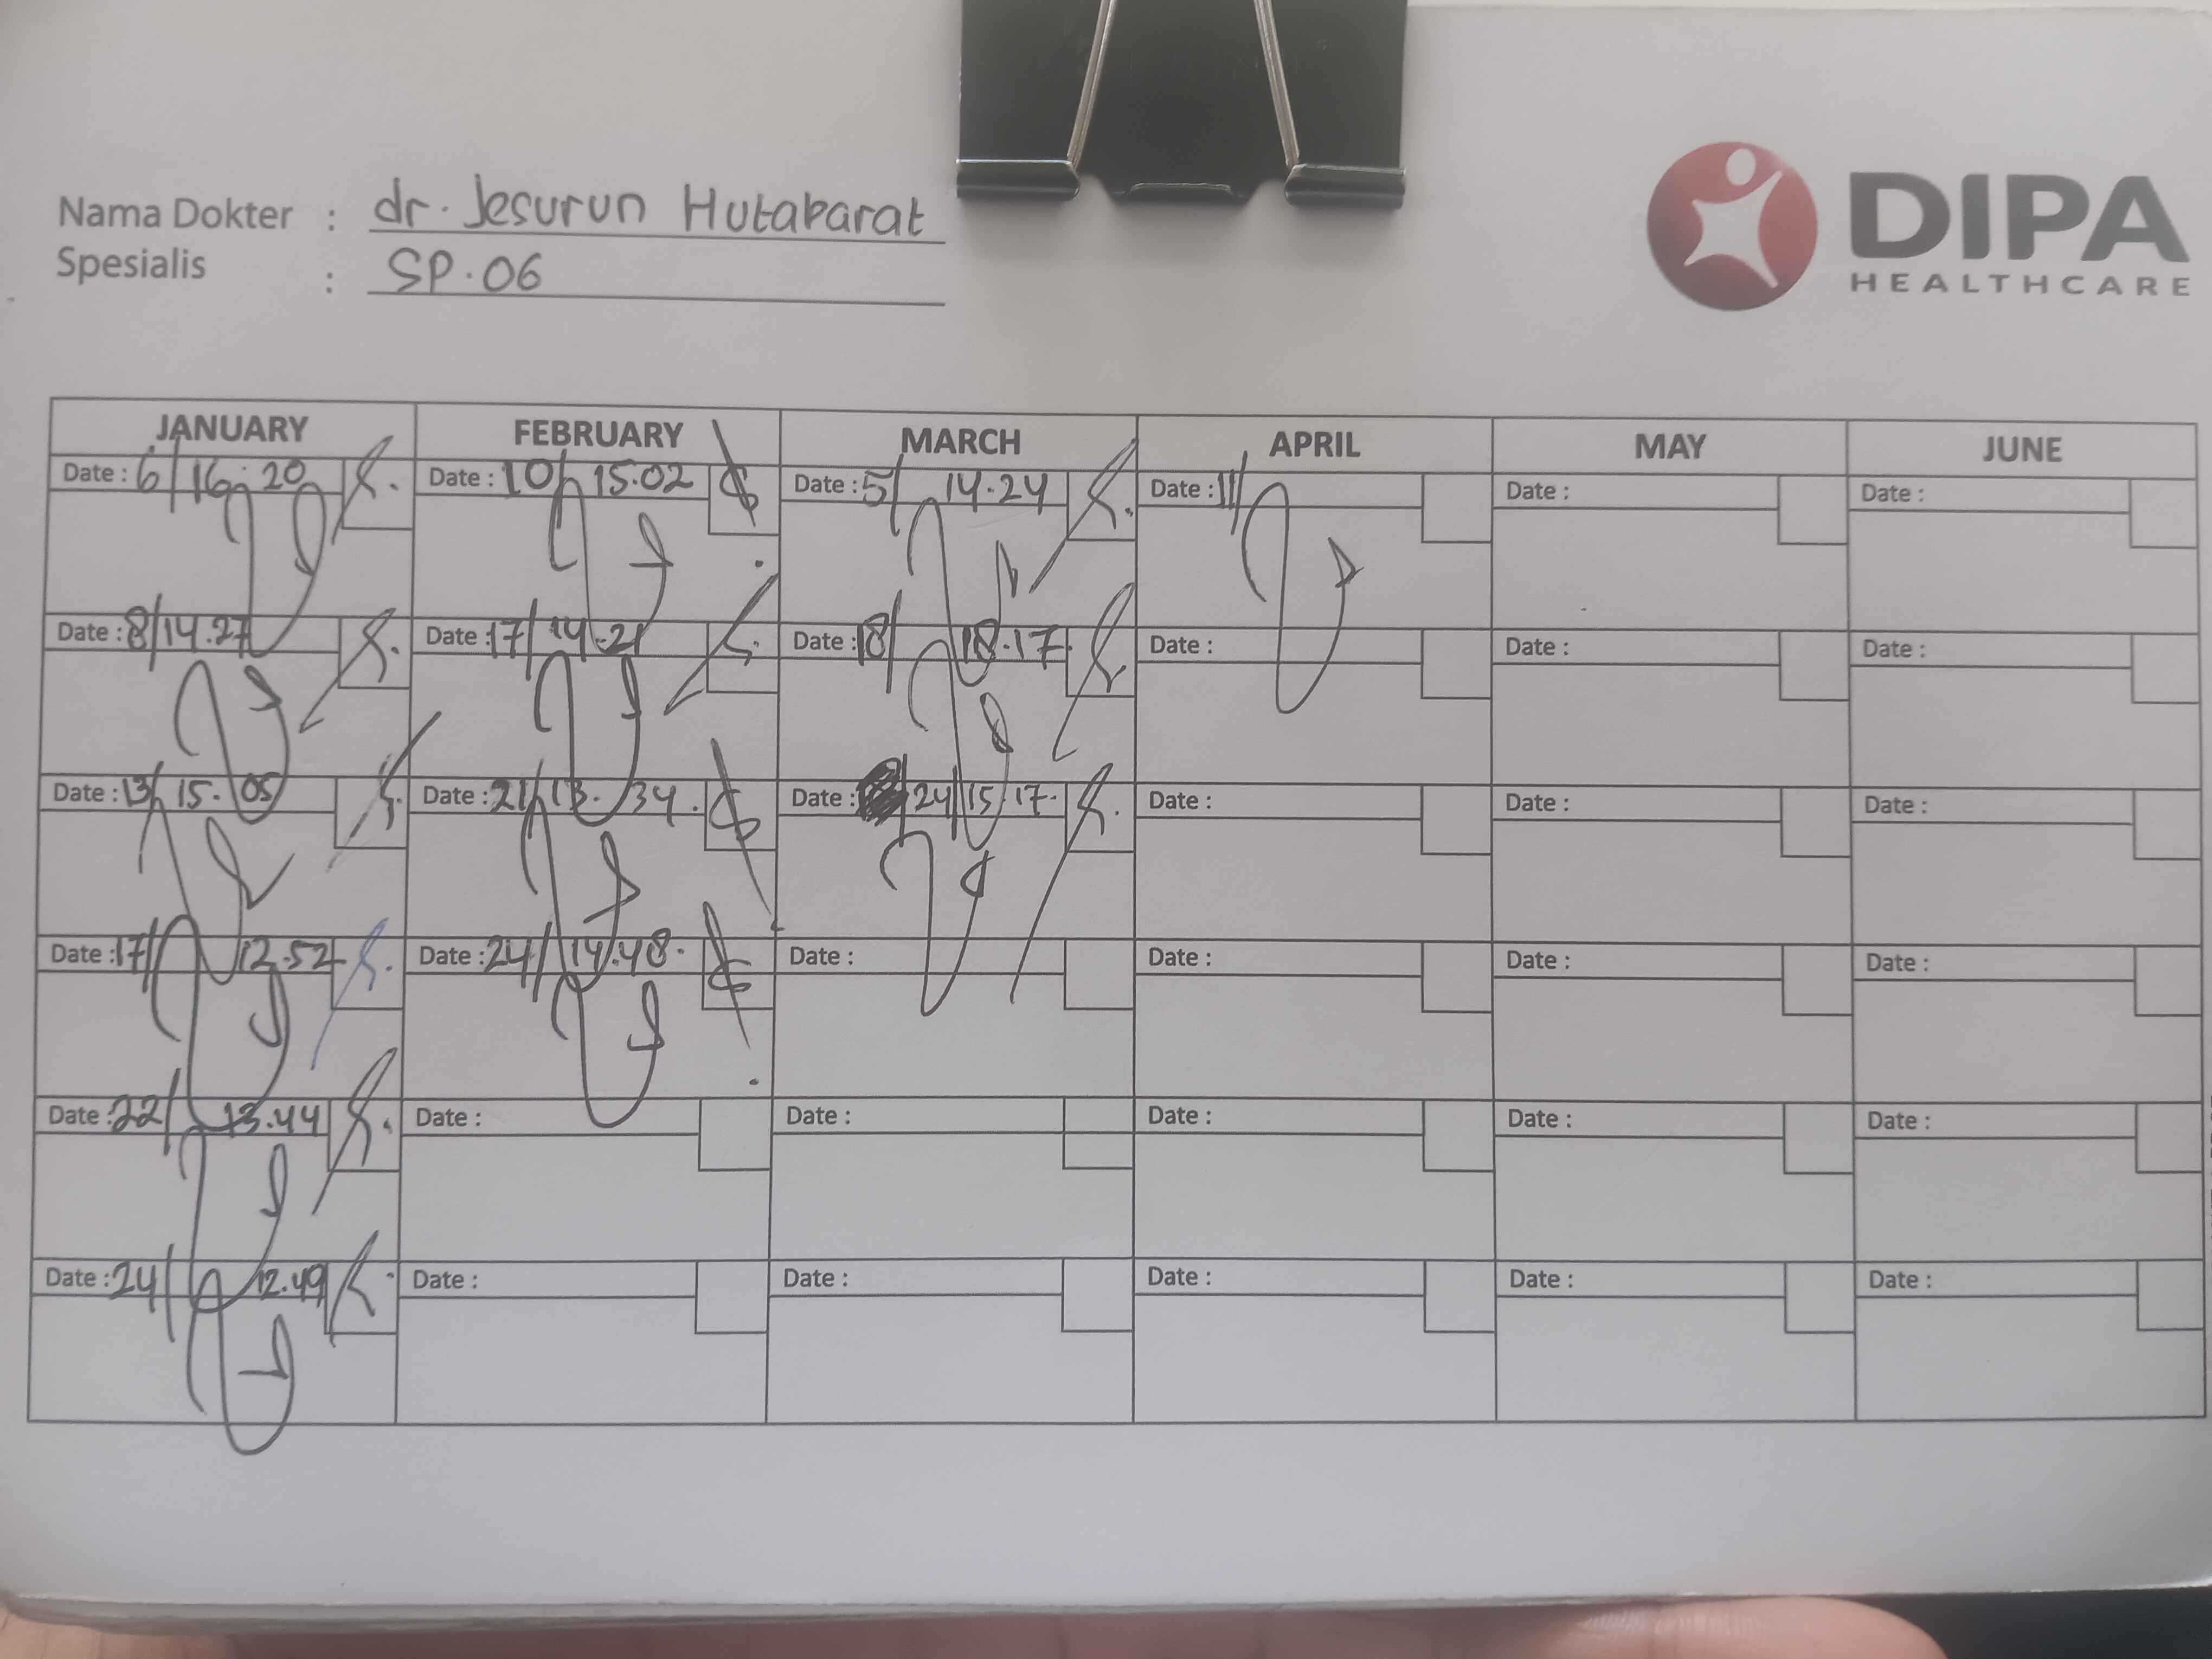 Nama Dokter : dr. Jesurun Hutabarat
Spesialis : SP.06
DIPA
HEALTHCARE
JANUARY FEBRUARY MARCH APRIL MAY JUNE
Date : 6/16.20 Date : 10/15.02 Date : 5/14.24 Date : 11/ Date : Date :
Date : 8/14.27 Date : 17/14.21 Date : 18/18.17. Date : Date : Date :
Date : 13/15.05 Date : 21/13.34. Date : 24/15.17. Date : Date : Date :
Date : 17/12.52 Date : 24/14.48. Date : Date : Date : Date :
Date : 22/13.44 Date : Date : Date : Date : Date :
Date : 24/12.49 Date : Date : Date : Date : Date :